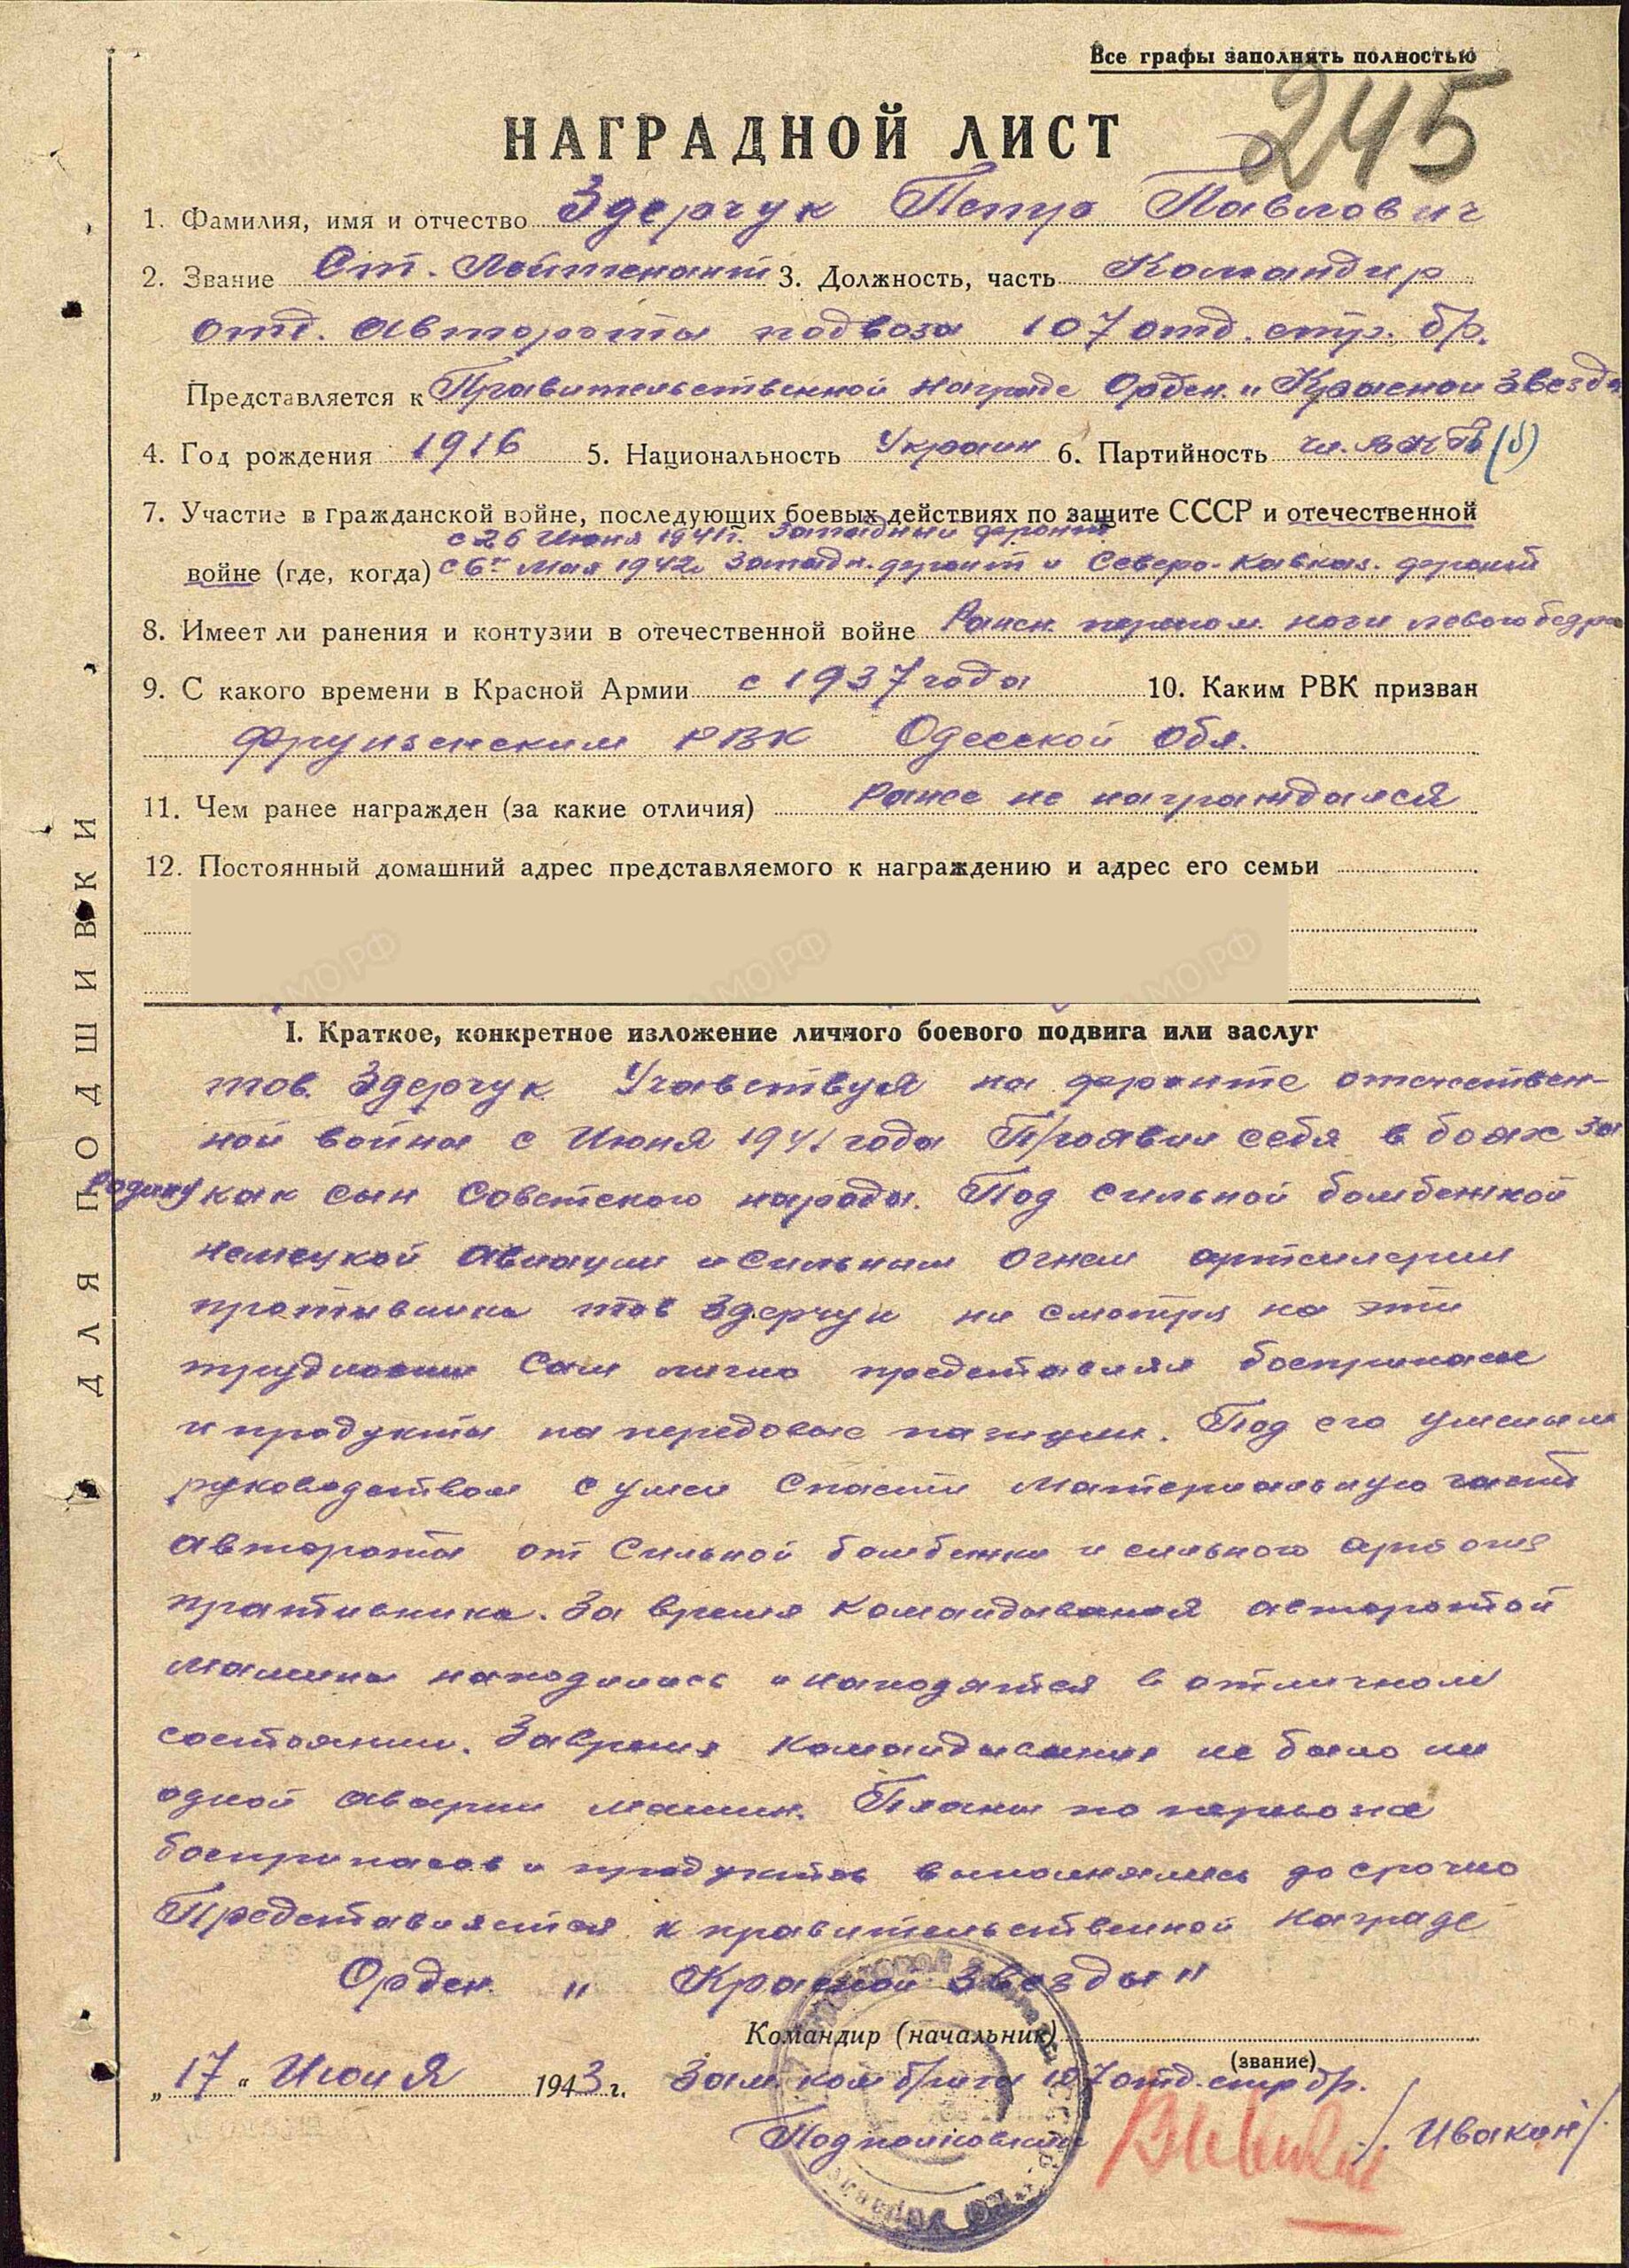 Все графы заполнять полностью
245
НАГРАДНОЙ ЛИСТ
1. Фамилия, имя и отчество Здерчук Петр Павлович
2. Звание Ст. Лейтенант 3. Должность, часть Командир
отд. Автороты подвоза 107 отд. стр. бр.
Представляется к Правительственной награде Орден. "Красной Звезды
4. Год рождения 1916 5. Национальность Украин 6. Партийность чл. ВКП(б)
7. Участие в гражданской войне, последующих боевых действиях по защите СССР и отечественной
с 26 Июня 1941г. Западный фронт
войне (где, когда) с 6го Мая 1942г Западн. фронт и Северо-Кавказ. фронт
8. Имеет ли ранения и контузии в отечественной войне перелом ноги левого бедра
9. С какого времени в Красной Армии с 1937 года 10. Каким РВК призван
Фрунзенским РВК Одесской Обл.
11. Чем ранее награжден (за какие отличия) Ранее не награждался
12. Постоянный домашний адрес представляемого к награждению и адрес его семьи
I. Краткое, конкретное изложение личного боевого подвига или заслуг
тов. Здерчук Учавствуя на фронте отечествен-
ной войны с Июня 1941 года Проявил себя в боях за
Родину как сын Советского народа. Под сильной бомбежкой
немецкой Авиации и сильным огнем артилерии
противника тов Здерчук не смотря на эти
трудности Сам лично представлял боеприпасы
и продукты на передовые позиции. Под его умелым
руководством сумел Спасти Материальную часть
Автороты от Сильной бомбежки и сильного арт огня
противника. За время Командования авторотой
Машины находились и находятся в отличном
состоянии. За время Командования не было ни
одной аварии машин. Планы по перевозке
боеприпасов и продуктов выполнялись до срочно
Представляется к правительственной награде
Орден. " Красной Звезды"
Командир (начальник)
(звание)
"17" Июня 1943 г. Зам. ком бригады 107 отд. стр бр.
Подполковник /Ивакин/
ДЛЯ ПОДШИВКИ